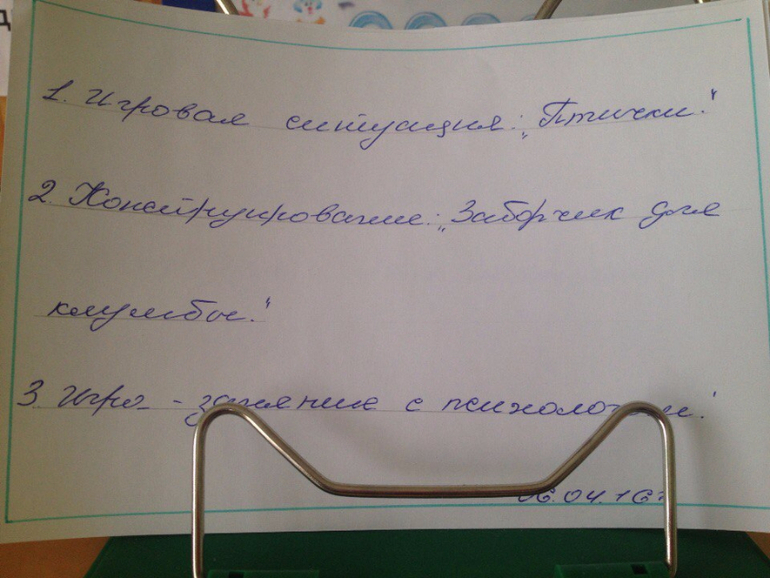 1. Игровая ситуация: „Птички."
2. Конструирование: „Заборчик для
клумбы."
3. Игра - занятие с психологом.
06.04.16г